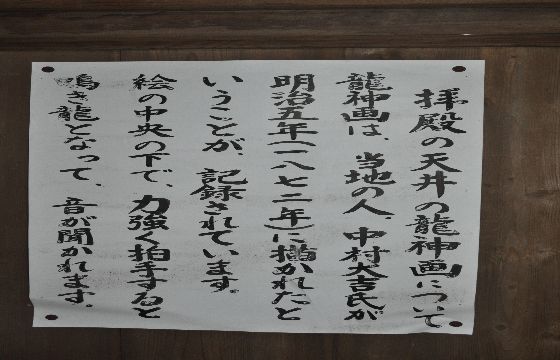 拝殿の天井の龍神画について
龍神画は、当地の人 中村犬吉氏が
明治五年(一八七二年)に描かれたと
いうことが、記録されています。
絵の中央の下で、力強く拍手すると
鳴き龍となって、音が聞かれます。